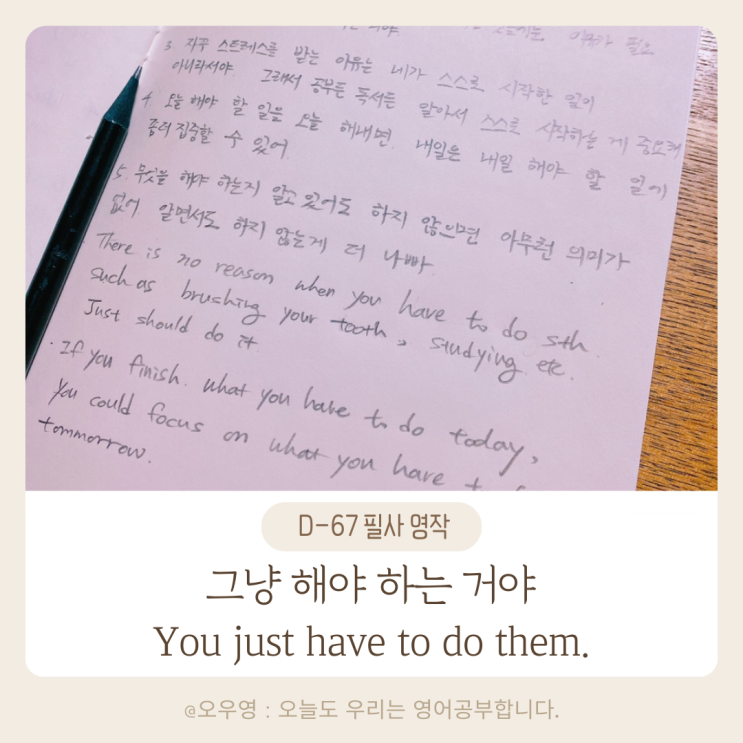 필요
3. 자꾸 스트레스를 받는 이유는 네가 스스로 시작한 일이
아니라서야. 그래서 공부든 독서든 알아서 스스로 시작하는 게 중요해
4. 오늘 해야 할 일을 오늘 해내면, 내일은 내일 해야 할 일에
좀더 집중할 수 있어.
5. 무엇을 해야 하는지 알고 있어도 하지 않으면 아무런 의미가
없어 알면서도 하지 않는게 더 나빠
There is no reason when you have to do sth.
such as brushing your tooth, studying. etc.
Just should do it.
· If you finish. what you have to do today,
You could focus on what you have
tommorrow.
D-67 필사 영작
그냥 해야 하는 거야
You just have to do them.
@오우영 : 오늘도 우리는 영어공부합니다.